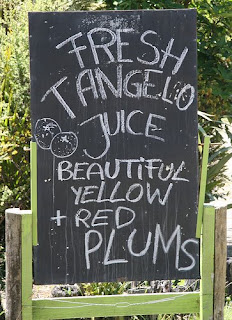 FRESH
TANGELO
JUICE
BEAUTIFUL
YELLOW
+ RED
PLUMS